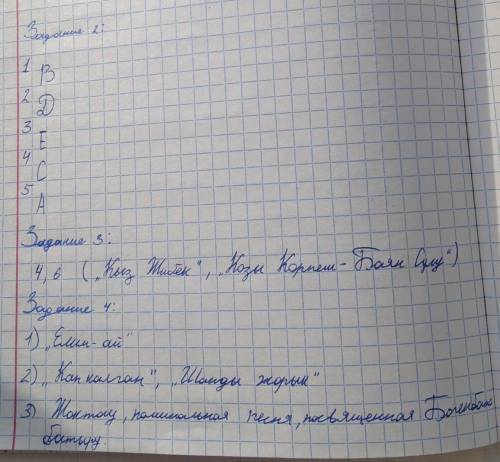 Задание 2:
1 B
2 D
3 E
4 C
5 A
Задание 3:
4, 6 („Кыз Жибек", „Козы Корпеш - Баян Сулу")
Задание 4:
1) „Елим-ай"
2) „Кап калган", „Шанды жорык"
3) Жоктау, поминальная песня, посвященная
Батыру.